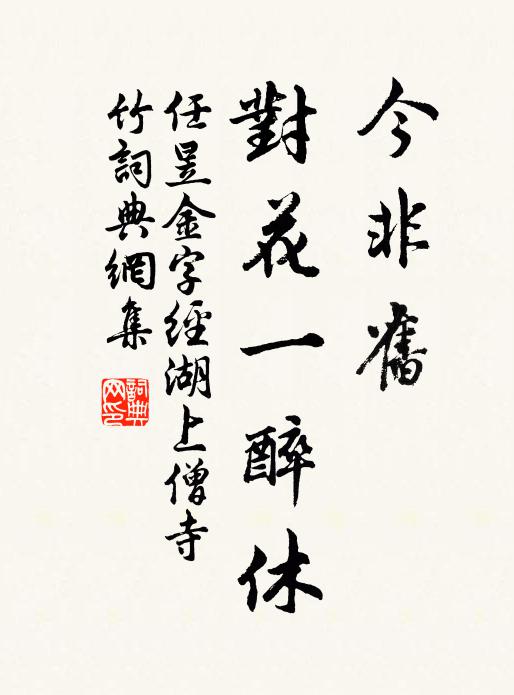 今非舊
對花一醉休
任昱金字經湖上僧寺
竹詞典網集
詞典网印